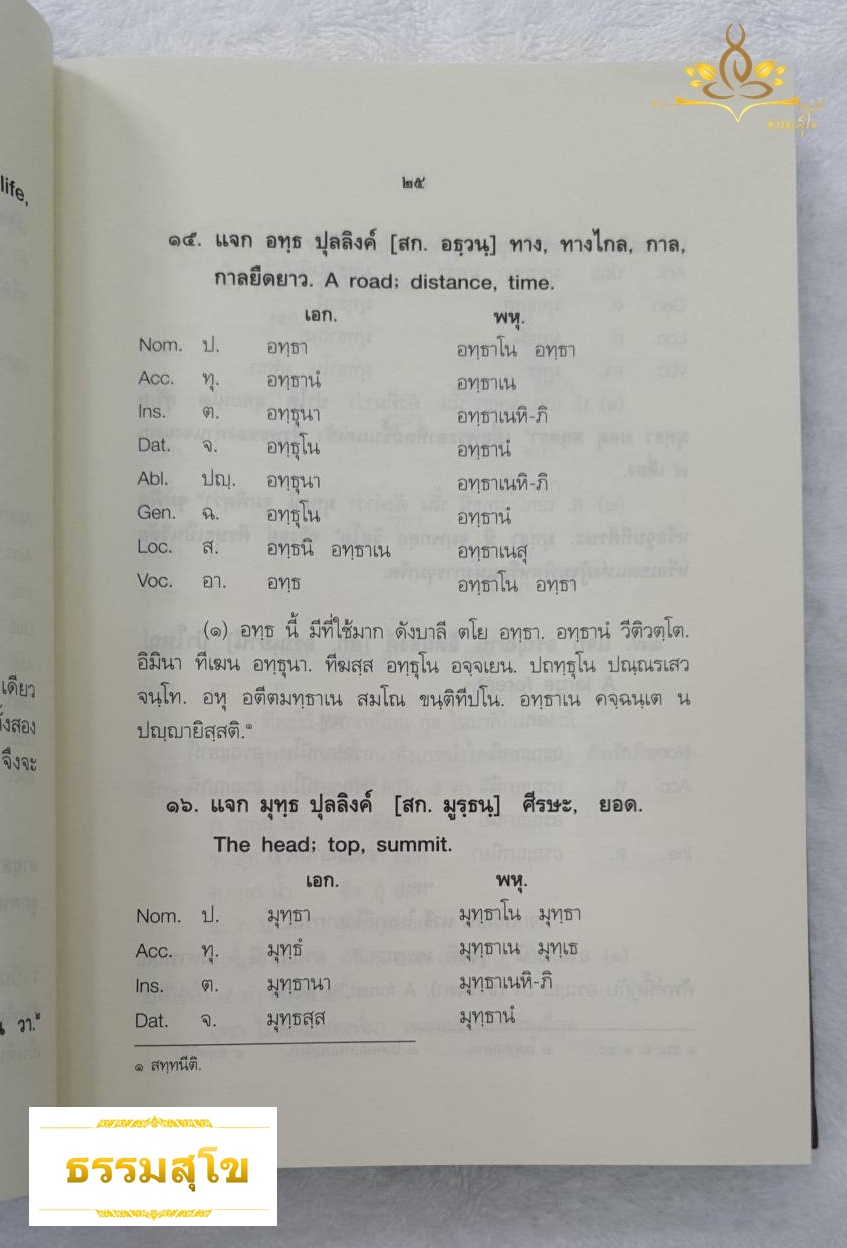 life,
๒๕
๑๕. แจก อทฺธ ปุลลิงค์ [สก. อธฺวนฺ] ทาง, ทางไกล, กาล,
กาลยืดยาว. A road; distance, time.
เอก. พหุ.
Nom. ป. อทฺธา อทฺธาโน อทฺธา
Acc. ทุ. อทฺธานํ อทฺธาเน
Ins. ต. อทฺธุนา อทฺธาเนหิ-ภิ
Dat. จ. อทฺธุโน อทฺธานํ
Abl. ปญฺ. อทฺธุนา อทฺธาเนหิ-ภิ
Gen. ฉ. อทฺธุโน อทฺธานํ
Loc. ส. อทฺธนิ อทฺธาเน อทฺธาเนสุ
Voc. อา. อทฺธ อทฺธาโน อทฺธา
(๑) อทฺธ นี้ มีที่ใช้มาก ดังบาลี ตโย อทฺธา. อทฺธานํ วีติวตฺโต.
อิมินา ทีเฆน อทฺธุนา. ทีฆสฺส อทฺธุโน อจฺจเยน. ปถทฺธุโน ปณฺณรเสว
จนฺโท. อหุ อตีตมทฺธาเน สมโณ ขนฺติทีปโน. อทฺธาเน คจฺฉนฺเต น
ปญฺญายิสฺสติ.๑
๑๖. แจก มุทฺธ ปุลลิงค์ [สก. มูรฺธนฺ] ศีรษะ, ยอด.
The head; top, summit.
เอก. พหุ.
Nom. ป. มุทฺธา มุทฺธาโน มุทฺธา
Acc. ทุ. มุทฺธํ มุทฺธาเน มุทฺเธ
Ins. ต. มุทฺธานา มุทฺธาเนหิ-ภิ
Dat. จ. มุทฺธสฺส มุทฺธานํ
๑ สทฺทนีติ.
เดียว
ทั้งสอง
จึงจะ
วา.๒
ธรรมสุโข
ธรรมสุโข